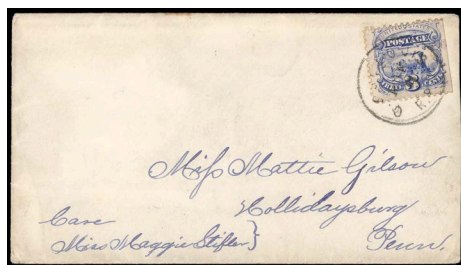 UNITED STATES
POSTAGE
THREE CENTS
3
Miss Mattie Gilson
Hollidaysburg
Penn.
Care
Miss Maggie Stifler }